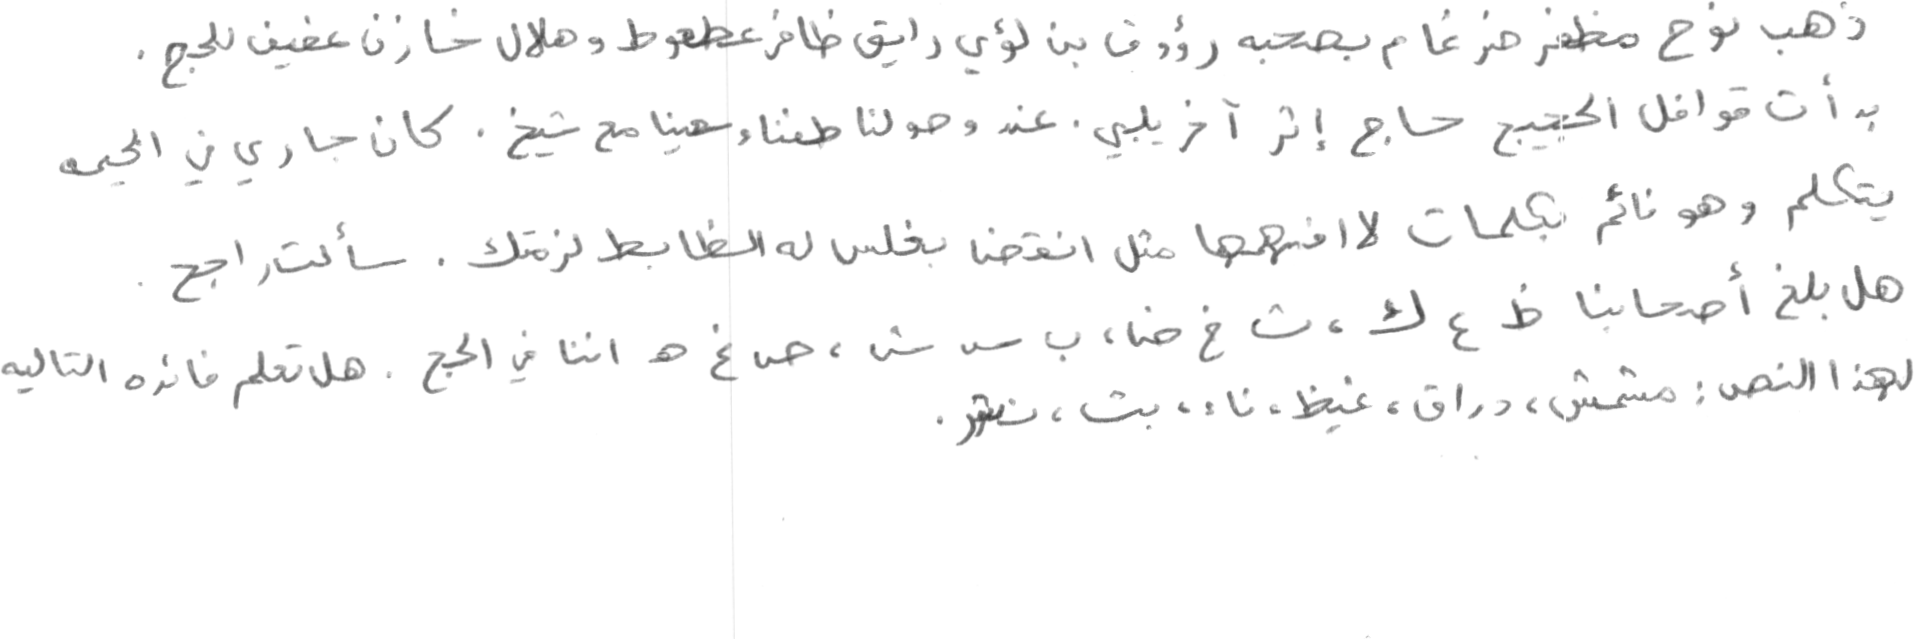 ذهب نوح مظفر ضرغام بصحبه رؤوف بن لؤي رايق ظافر عطعوط وهلال خازن عفيف للحج .
بدأت قوافل الحجيج حاج إثر آخر يلبي . عند وصولنا طفنا وسعينا مع شيخ . كان جاري في الخيمه
يتكلم وهو نائم بكلمات لا افهمها مثل انقضنا بغلس له الظابط لزمتك . سألت راجح .
هل بلغ أصحابنا ظ ع ك ، ث خ ض ، ب س ش ، ص غ ه اننا في الحج . هل تعلم فائده التاليه
لهذا النص : مشمش ، دراق ، غيظ ، ناء ، بث ، نشر .